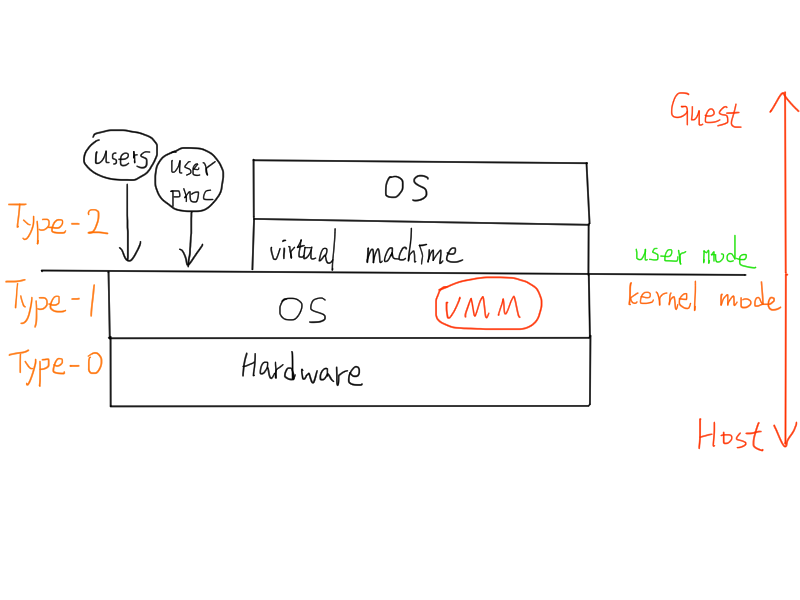 Guest
users
user
proc
OS
Type-2
virtual machime
user mode
Type-1
OS
VMM
kernel mode
Type-0
Hardware
Host